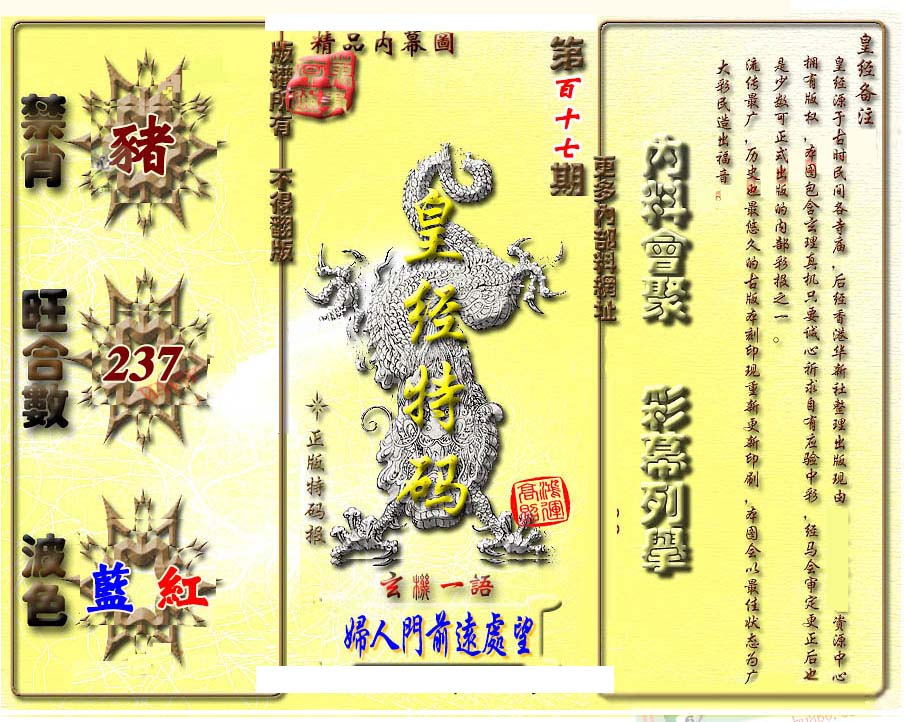 皇经备注
皇经源于古时民间各寺庙,后经香港华新社整理出版现由 资源中心
拥有版权,本图包含玄理真机只要诚心祈求自有应验中彩,经马会审定更正后也
是少数可正式出版的内部彩报之一。
流传最广,历史也最悠久的古版本刻印现重新更新印刷,本图会以最佳状态为广
大彩民造出福音
內料會聚
彩幕列舉
更多内部料網址
第百十七期
精品内幕圖
皇经特码
正版特码报
鴻運
高照
玄機一語
婦人門前遠處望
版權所有 不得翻版
禁肖
豬
旺合數
237
波色
藍 紅